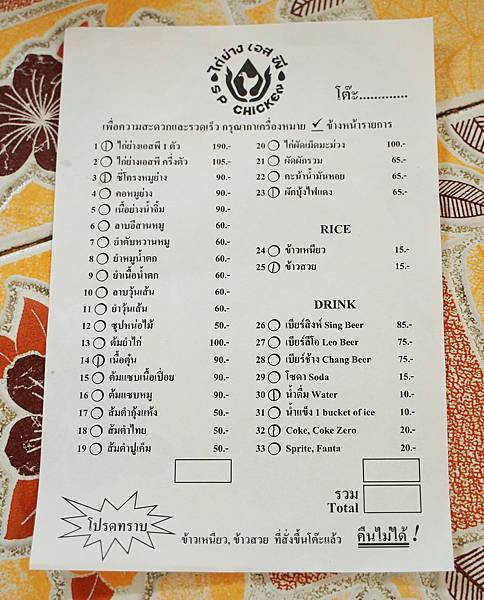 ไก่ย่าง เอส พี
S P CHICKEN
โต๊ะ.............
เพื่อความสะดวกและรวดเร็ว กรุณากาเครื่องหมาย ✓ ข้างหน้ารายการ
1 ไก่ย่างเอสพี 1 ตัว 190.-
2 ไก่ย่างเอสพี ครึ่งตัว 105.-
3 ซี่โครงหมูย่าง 90.-
4 คอหมูย่าง 90.-
5 เนื้อย่างน้ำจิ้ม 90.-
6 ลาบอีสานหมู 60.-
7 ยำตับหวานหมู 60.-
8 ยำหมูน้ำตก 60.-
9 ยำเนื้อน้ำตก 60.-
10 ลาบวุ้นเส้น 60.-
11 ยำวุ้นเส้น 60.-
12 ซุปหน่อไม้ 50.-
13 ต้มยำไก่ 100.-
14 เนื้อตุ๋น 90.-
15 ต้มแซบเนื้อเปื่อย 90.-
16 ต้มแซบหมู 90.-
17 ส้มตำกุ้งแห้ง 50.-
18 ส้มตำไทย 50.-
19 ส้มตำปูเค็ม 50.-
20 ไก่ผัดเม็ดมะม่วง 100.-
21 ผัดผักรวม 65.-
22 คะน้าน้ำมันหอย 65.-
23 ผักบุ้งไฟแดง 65.-
RICE
24 ข้าวเหนียว 15.-
25 ข้าวสวย 15.-
DRINK
26 เบียร์สิงห์ Sing Beer 85.-
27 เบียร์ลีโอ Leo Beer 75.-
28 เบียร์ช้าง Chang Beer 75.-
29 โซดา Soda 15.-
30 น้ำดื่ม Water 10.-
31 น้ำแข็ง 1 bucket of ice 10.-
32 Coke, Coke Zero 20.-
33 Sprite, Fanta 20.-
รวม
Total
โปรดทราบ
ข้าวเหนียว, ข้าวสวย ที่สั่งขึ้นโต๊ะแล้ว คืนไม่ได้ !